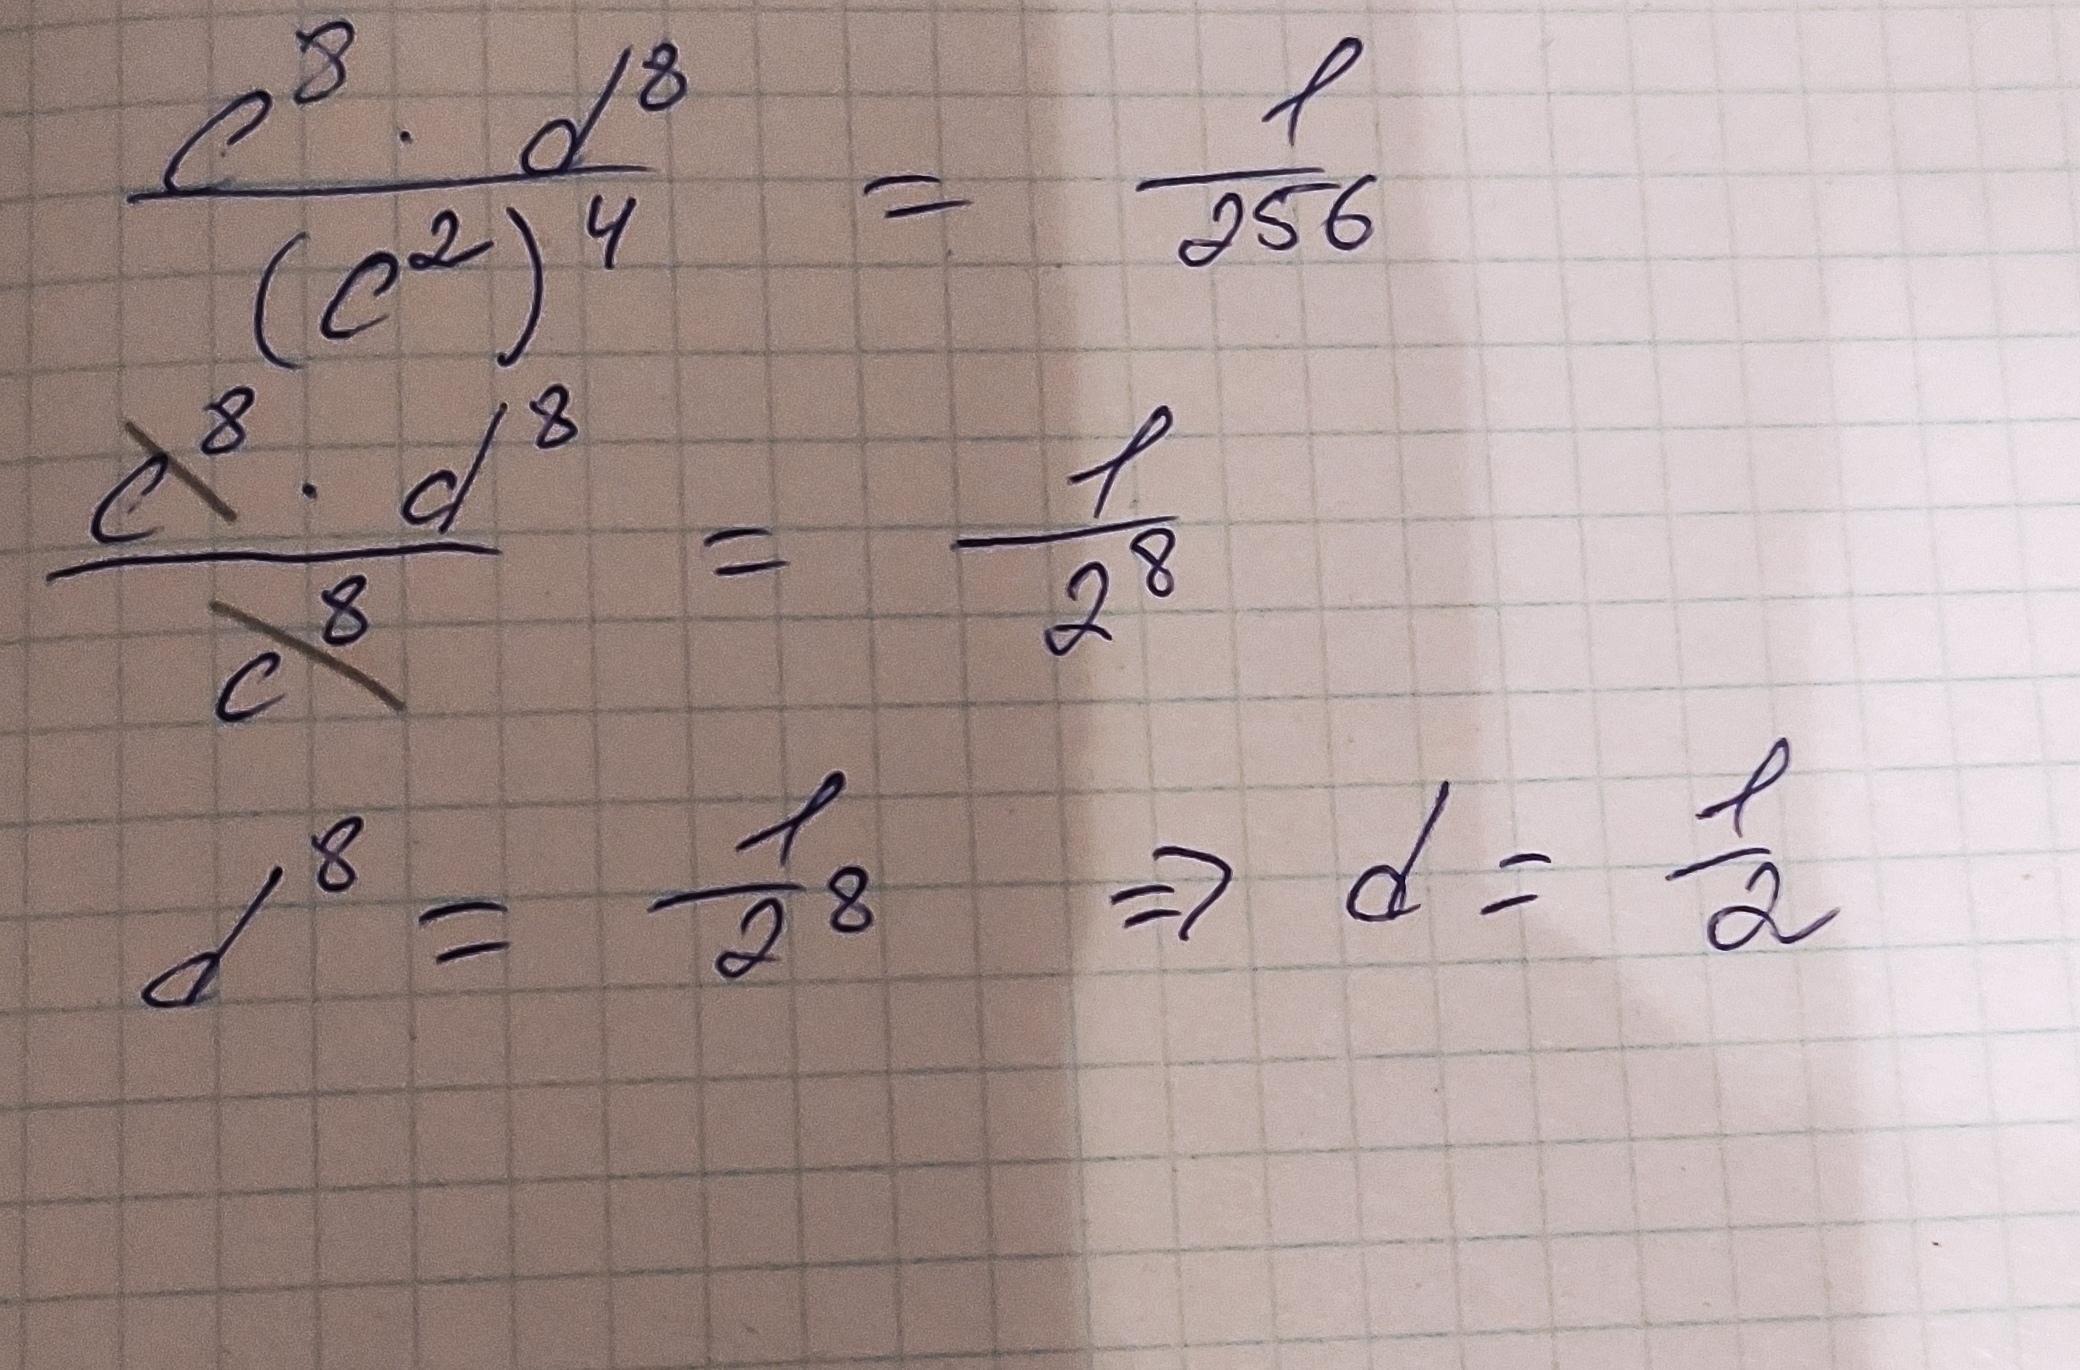 c⁸ · d⁸ / (c²)⁴ = 1/256
c⁸ · d⁸ / c⁸ = 1/2⁸
d⁸ = 1/2⁸ ⇒ d = 1/2